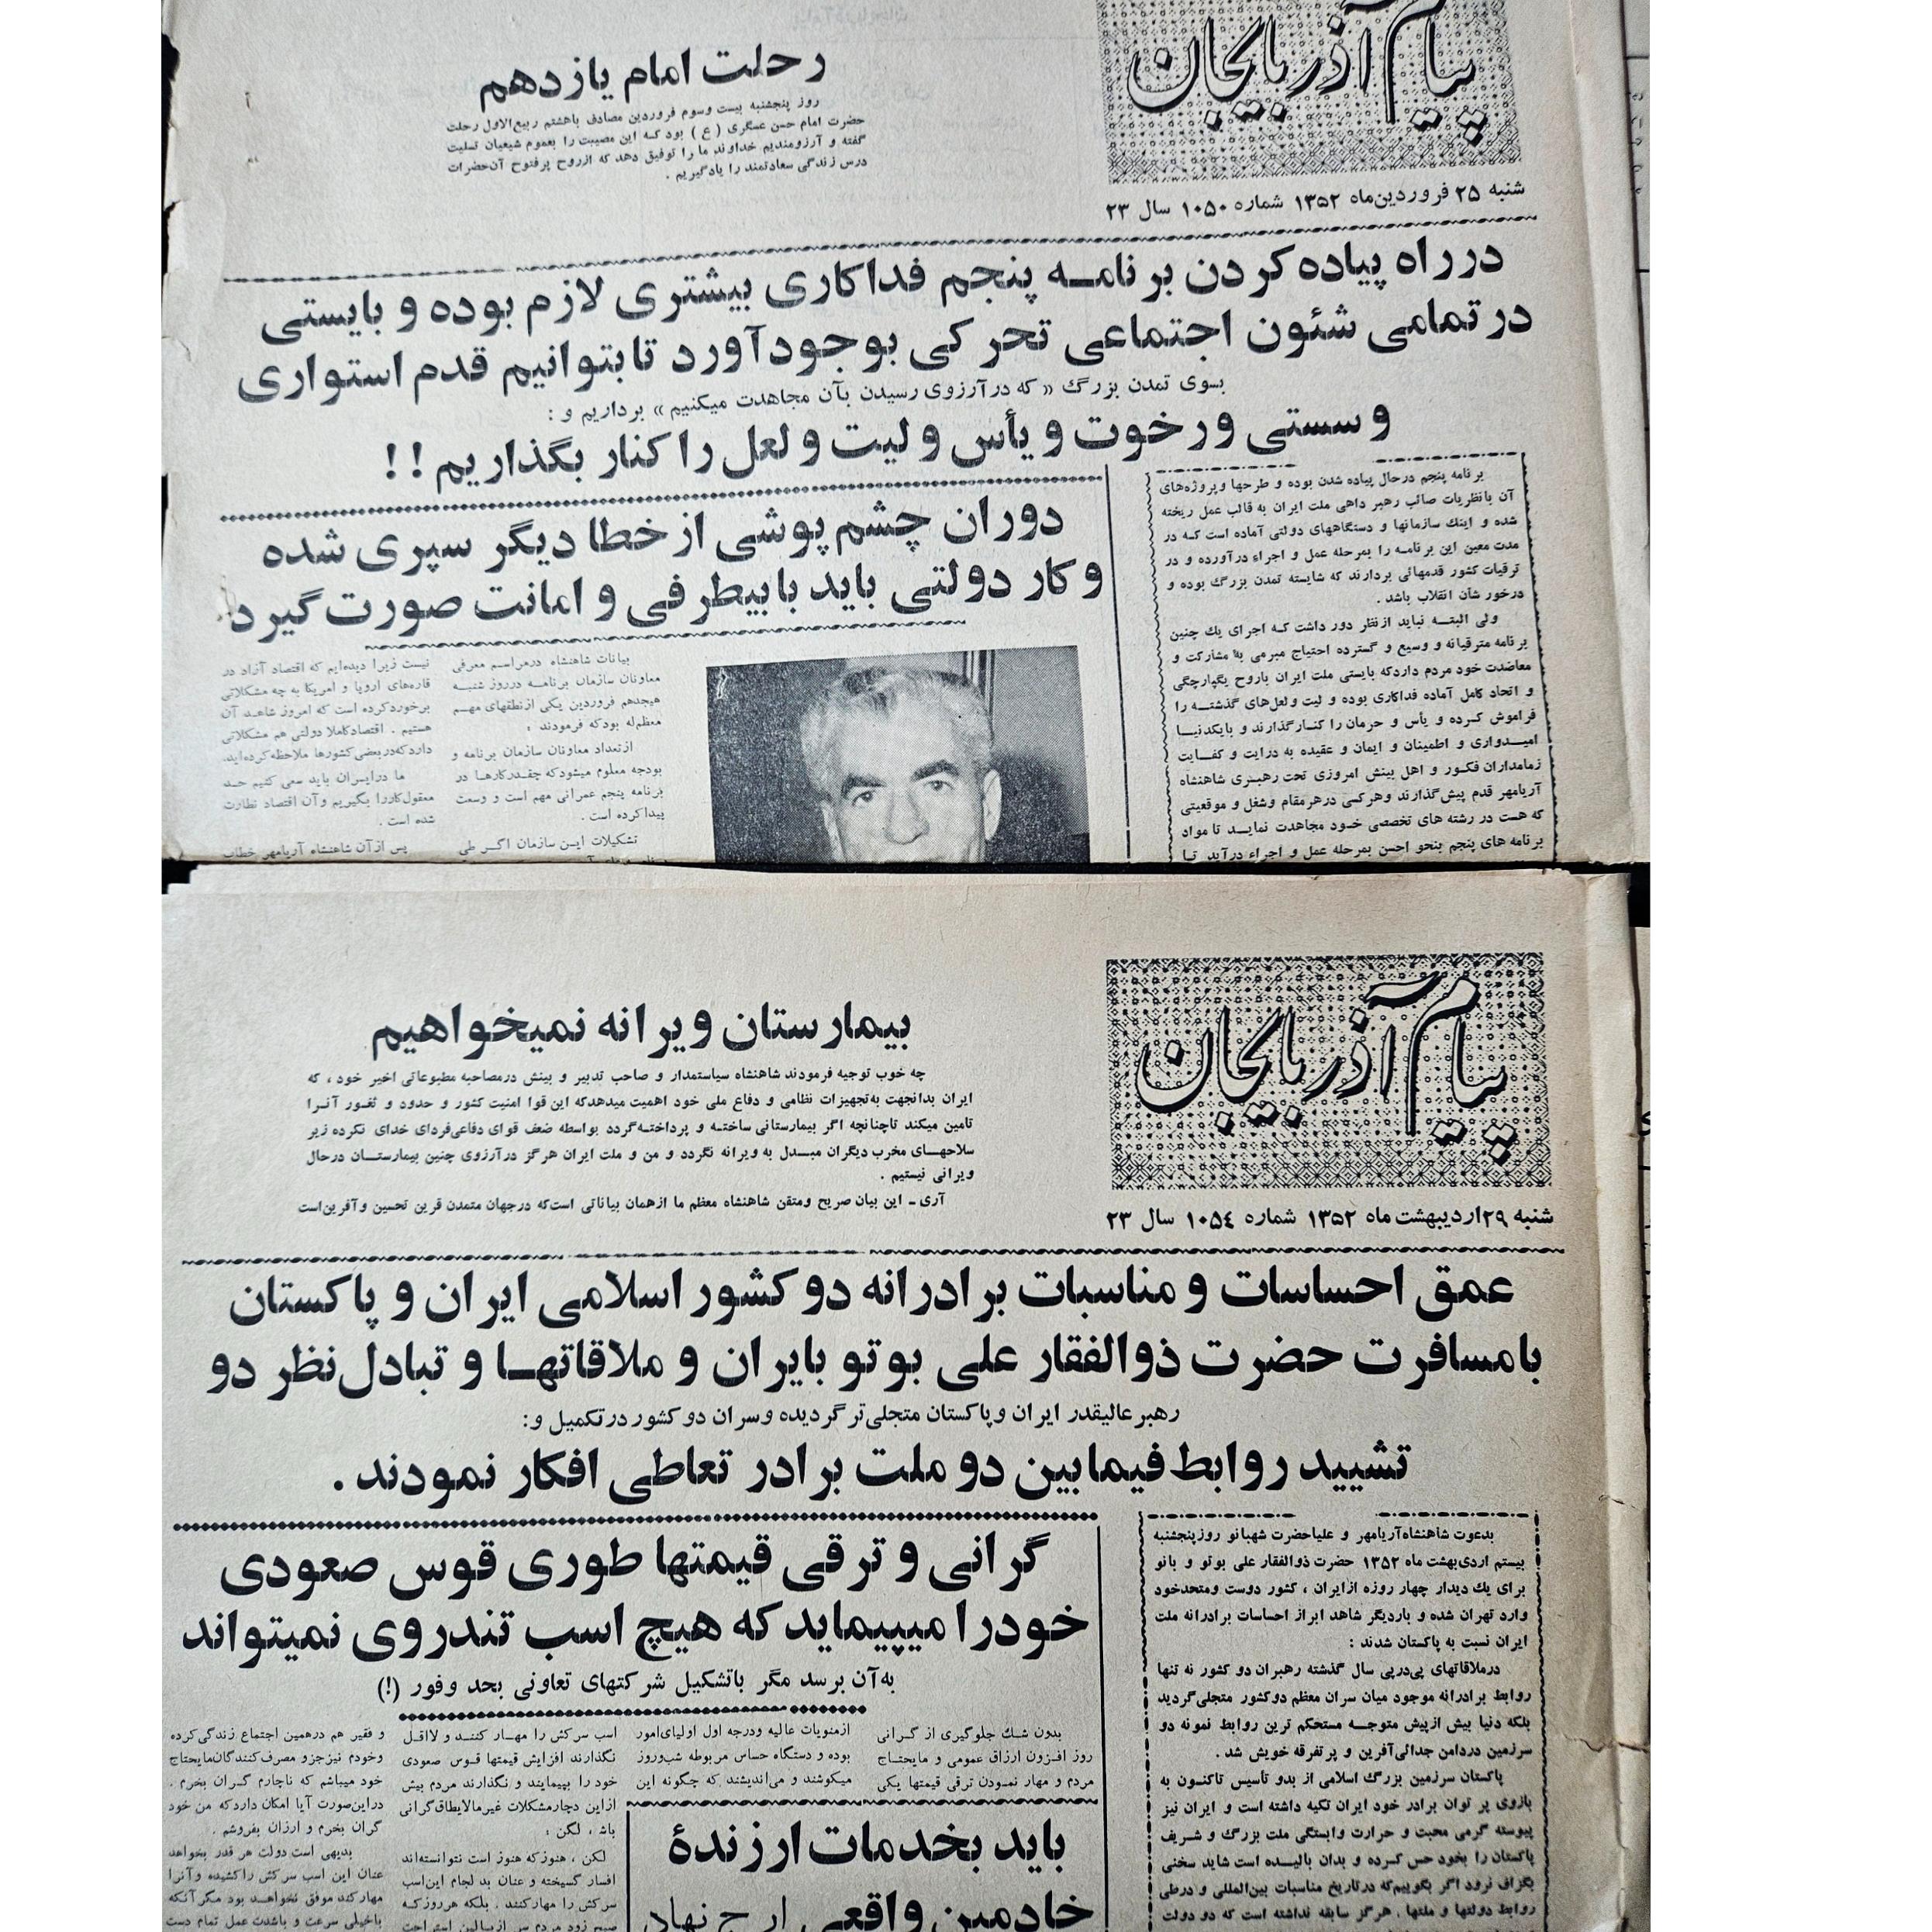 پیام آذربایجان
شنبه ۲۵ فروردین‌ماه ۱۳۵۲ شماره ۱۰۵۰ سال ۲۳
رحلت امام یازدهم
روز پنجشنبه بیست وسوم فروردین مصادف باهشتم ربیع‌الاول رحلت
حضرت امام حسن عسگری ( ع ) بود که این مصیبت را بعموم شیعیان تسلیت
گفته و آرزومندیم خداوند ما را توفیق دهد که ازروح پرفتوح آن‌حضرات
درس زندگی سعادتمند را یادگیریم .
در راه پیاده کردن برنامه پنجم فداکاری بیشتری لازم بوده و بایستی
در تمامی شئون اجتماعی تحرکی بوجودآورد تا بتوانیم قدم استواری
بسوی تمدن بزرگ « که درآرزوی رسیدن بآن مجاهدت میکنیم » برداریم و :
و سستی و رخوت و یأس و لیت و لعل را کنار بگذاریم !!
برنامه پنجم درحال پیاده شدن بوده و طرحها و پروژه‌های
آن بانظریات صائب رهبر داهی ملت ایران به قالب عمل ریخته
شده و اینك سازمانها و دستگاههای دولتی آماده است که در
مدت معین این برنامه را بمرحله عمل و اجراء درآورده و در
ترقیات کشور قدمهائی بردارند که شایسته تمدن بزرگ بوده و
درخور شأن انقلاب باشد .
ولی البته نباید ازنظر دور داشت که اجرای یك چنین
برنامه مترقیانه و وسیع و گسترده احتیاج مبرمی به مشارکت و
معاضدت خود مردم داردکه بایستی ملت ایران باروح یگپارچگی
و اتحاد کامل آماده فداکاری بوده و لیت ولعل‌های گذشته را
فراموش کرده و یأس و حرمان را کنارگذارند و بایکدنیا
امیدواری و اطمینان و ایمان و عقیده به درایت و کفایت
زمامداران فکور و اهل بینش امروزی تحت رهبری شاهنشاه
آریامهر قدم پیش‌گذارند وهرکس درهرمقام وشغل و موقعیتی
که هست در رشته های تخصصی خود مجاهدت نماید تا مواد
برنامه های پنجم بنحو احسن بمرحله عمل و اجراء درآید تا
دوران چشم پوشی از خطا دیگر سپری شده
و کار دولتی باید با بیطرفی و امانت صورت گیرد
بیانات شاهنشاه درمراسم معرفی
معاونان سازمان برنامه درروز شنبه
هیجدهم فروردین یکی ازنطقهای مهم
معظم‌له بودکه فرمودند :
ازتعداد معاونان سازمان برنامه و
بودجه معلوم میشودکه چقدرکارها در
برنامه پنجم عمرانی مهم است و وسعت
پیدا کرده است .
تشکیلات این سازمان اگر طی
نیست زیرا دیده‌ایم که اقتصاد آزاد در
قاره‌های اروپا و امریکا به چه مشکلاتی
برخوردکرده است که امروز شاهد آن
هستیم . اقتصادکاملا دولتی هم مشکلاتی
داردکه‌دربعضی‌کشورها ملاحظه‌کرده‌اید.
ما درایران باید سعی کنیم حد
معقول‌کاررا بگیریم وآن اقتصاد نظارت
شده است .
پس ازآن شاهنشاه آریامهر خطاب
پیام آذربایجان
شنبه ۲۹اردیبهشت ماه ۱۳۵۲ شماره ۱۰۵٤ سال ۲۳
بیمارستان ویرانه نمیخواهیم
چه خوب توجیه فرمودند شاهنشاه سیاستمدار و صاحب تدبیر و بینش درمصاحبه مطبوعاتی اخیر خود ، که
ایران بدانجهت به‌تجهیزات نظامی و دفاع ملی خود اهمیت میدهدکه این قوا امنیت کشور و حدود و ثغور آنرا
تامین میکند تاچنانچه اگر بیمارستانی ساخته و پرداخته‌گردد بواسطه ضعف قوای دفاعی‌فردای خدای نکرده زیر
سلاحهای مخرب دیگران مبدل به ویرانه نگردد و من و ملت ایران هرگز درآرزوی چنین بیمارستان درحال
ویرانی نیستیم .
آری ـ این بیان صریح ومتقن شاهنشاه معظم ما ازهمان بیاناتی است‌که درجهان متمدن قرین تحسین وآفرین‌است
عمق احساسات و مناسبات برادرانه دو کشور اسلامی ایران و پاکستان
با مسافرت حضرت ذوالفقار علی بوتو بایران و ملاقاتها و تبادل نظر دو
رهبر عالیقدر ایران وپاکستان متجلی‌تر گردیده وسران دو کشور درتکمیل و:
تشیید روابط فیما بین دو ملت برادر تعاطی افکار نمودند .
بدعوت شاهنشاه‌آریامهر و علیاحضرت شهبانو روزپنجشنبه
بیستم اردی‌بهشت ماه ۱۳۵۲ حضرت ذوالفقار علی بوتو و بانو
برای یك دیدار چهار روزه ازایران ، کشور دوست ومتحدخود
وارد تهران شده و باردیگر شاهد ابراز احساسات برادرانه ملت
ایران نسبت به پاکستان شدند :
درملاقاتهای پی‌درپی سال گذشته رهبران دو کشور نه تنها
روابط برادرانه موجود میان سران معظم دوکشور متجلی‌گردید
بلکه دنیا بیش ازپیش متوجه مستحکم ترین روابط نمونه دو
سرزمین دردامن جدائی‌آفرین و پرتفرقه خویش شد .
پاکستان سرزمین بزرگ اسلامی از بدو تأسیس تاکنون به
بازوی پر توان برادر خود ایران تکیه داشته است و ایران نیز
پیوسته گرمی محبت و حرارت وابستگی ملت بزرگ و شریف
پاکستان را بخود حس کرده و بدان بالیده است شاید سخنی
بگزاف نرود اگر بگوییم‌که درتاریخ مناسبات بین‌المللی و درطی
روابط دولتها و ملتها ، هرگز سابقه نداشته است که دو دولت
گرانی و ترقی قیمتها طوری قوس صعودی
خودرا میپیماید که هیچ اسب تندروی نمیتواند
به‌آن برسد مگر باتشکیل شرکتهای تعاونی بحد وفور (!)
بدون شك جلوگیری از گرانی
روز افزون ارزاق عمومی و مایحتاج
مردم و مهار نمودن ترقی قیمتها یکی
ازمنویات عالیه ودرجه اول اولیای‌امور
بوده و دستگاه حساس مربوطه شب‌وروز
میکوشند و می‌اندیشند که چگونه این
اسب سرکش را مهار کنند و لااقل
نگذارند افزایش قیمتها قوس صعودی
خود را بپیمایند و نگذارند مردم بیش
ازاین دچارمشکلات غیرمالایطاق‌گرانی
باشد ، لکن :
لکن ، هنوزکه هنوز است نتوانسته‌اند
افسار گسیخته و عنان بد لجام این‌اسب
سرکش را مهارکنند . بلکه هرروزکه
صبح زود مردم سر ازبالین استراحت
و فقیر هم درهمین اجتماع زندگی‌کرده
وخودم نیزجزو مصرف‌کنندگان‌مایحتاج
خود میباشم که ناچارم گران بخرم .
دراین‌صورت آیا امکان داردکه من خود
گران بخرم و ارزان بفروشم .
بدیهی است دولت هر قدر بخواهد
عنان این اسب سرکش راکشیده وآنرا
مهارکند موفق نخواهد بود مگرآنکه
باخیلی سرعت و باشدت عمل تمام دست
باید بخدمات ارزندهٔ
خادمین واقعی ارج نهاد